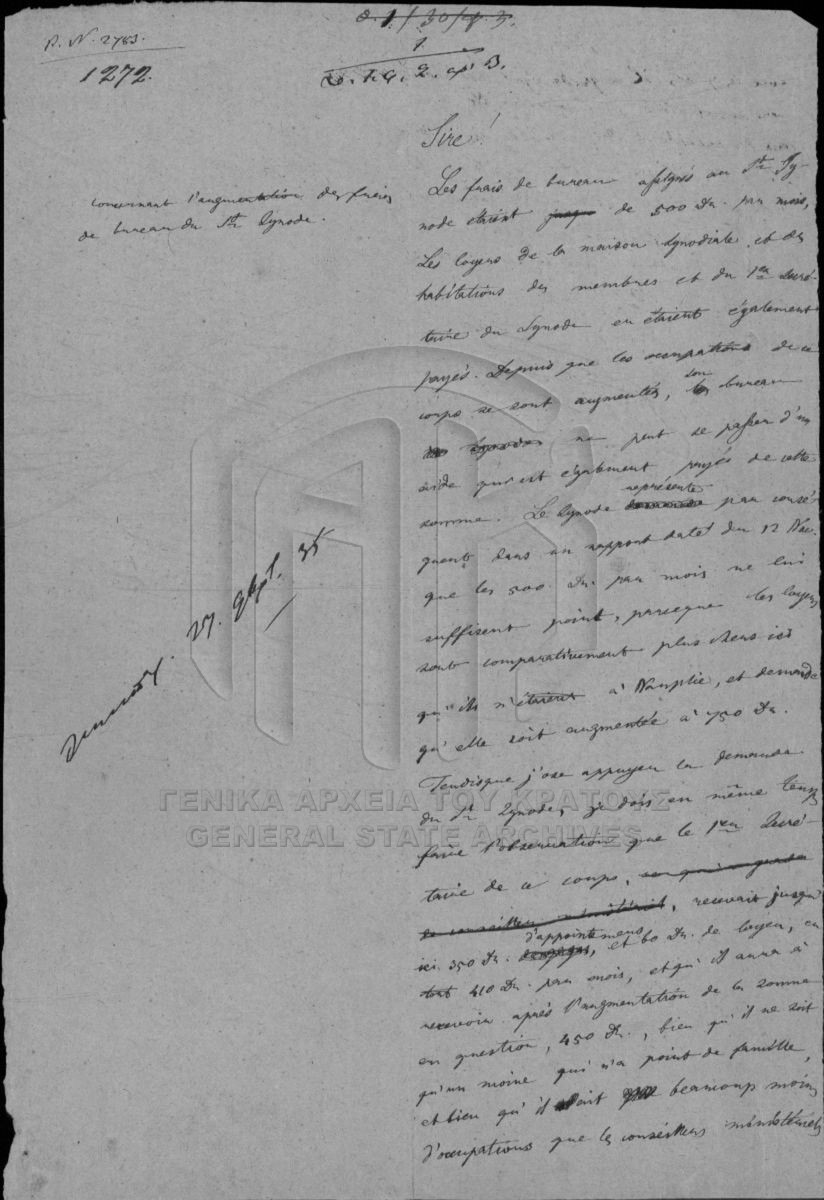 P. N. 2783.
1272.
Sire!
concernant l'augmentation des frais
de bureau du St. Synode.
Les frais de bureau assignés au St. Sy-
node étaient jusque de 500 Dr. par mois,
Les loyers de la maison synodiale et des
habitations des membres et du 1er secré-
taire du Synode en étaient également
payés. Depuis que les occupations de ce
corps se sont augmentés, son bureau
ne peut se passer d'un
aide qui est également payés de cette
somme. Le Synode représente par consé-
quent, dans un rapport daté du 12 Nov.
que les 500 Dr. par mois ne lui
suffisent point, parceque les loyers
sont comparativement plus chers ici
qu'ils n'étaient à Nauplie, et demande
qu'elle soit augmentée à 750 Dr.
Tandisque j'ose appuyer la demande
du St. Synode, je dois en même temps
faire l'observation que le 1er Secré-
taire de ce corps,
de conseiller ministériel, recevait jusqu'
ici 350 Dr. d'appointemens, et 60 Dr. de loyer, en
tout 410 Dr. par mois, et qu'il aura à
recevoir après l'augmentation de la somme
en question, 450 Dr., bien qu'il ne soit
qu'un moine qui n'a point de famille,
et bien qu'il ait beaucoup moins
d'occupations que les conseillers ministériels
27. Sept. 35
ΓΕΝΙΚΑ ΑΡΧΕΙΑ ΤΟΥ ΚΡΑΤΟΥΣ
GENERAL STATE ARCHIVES